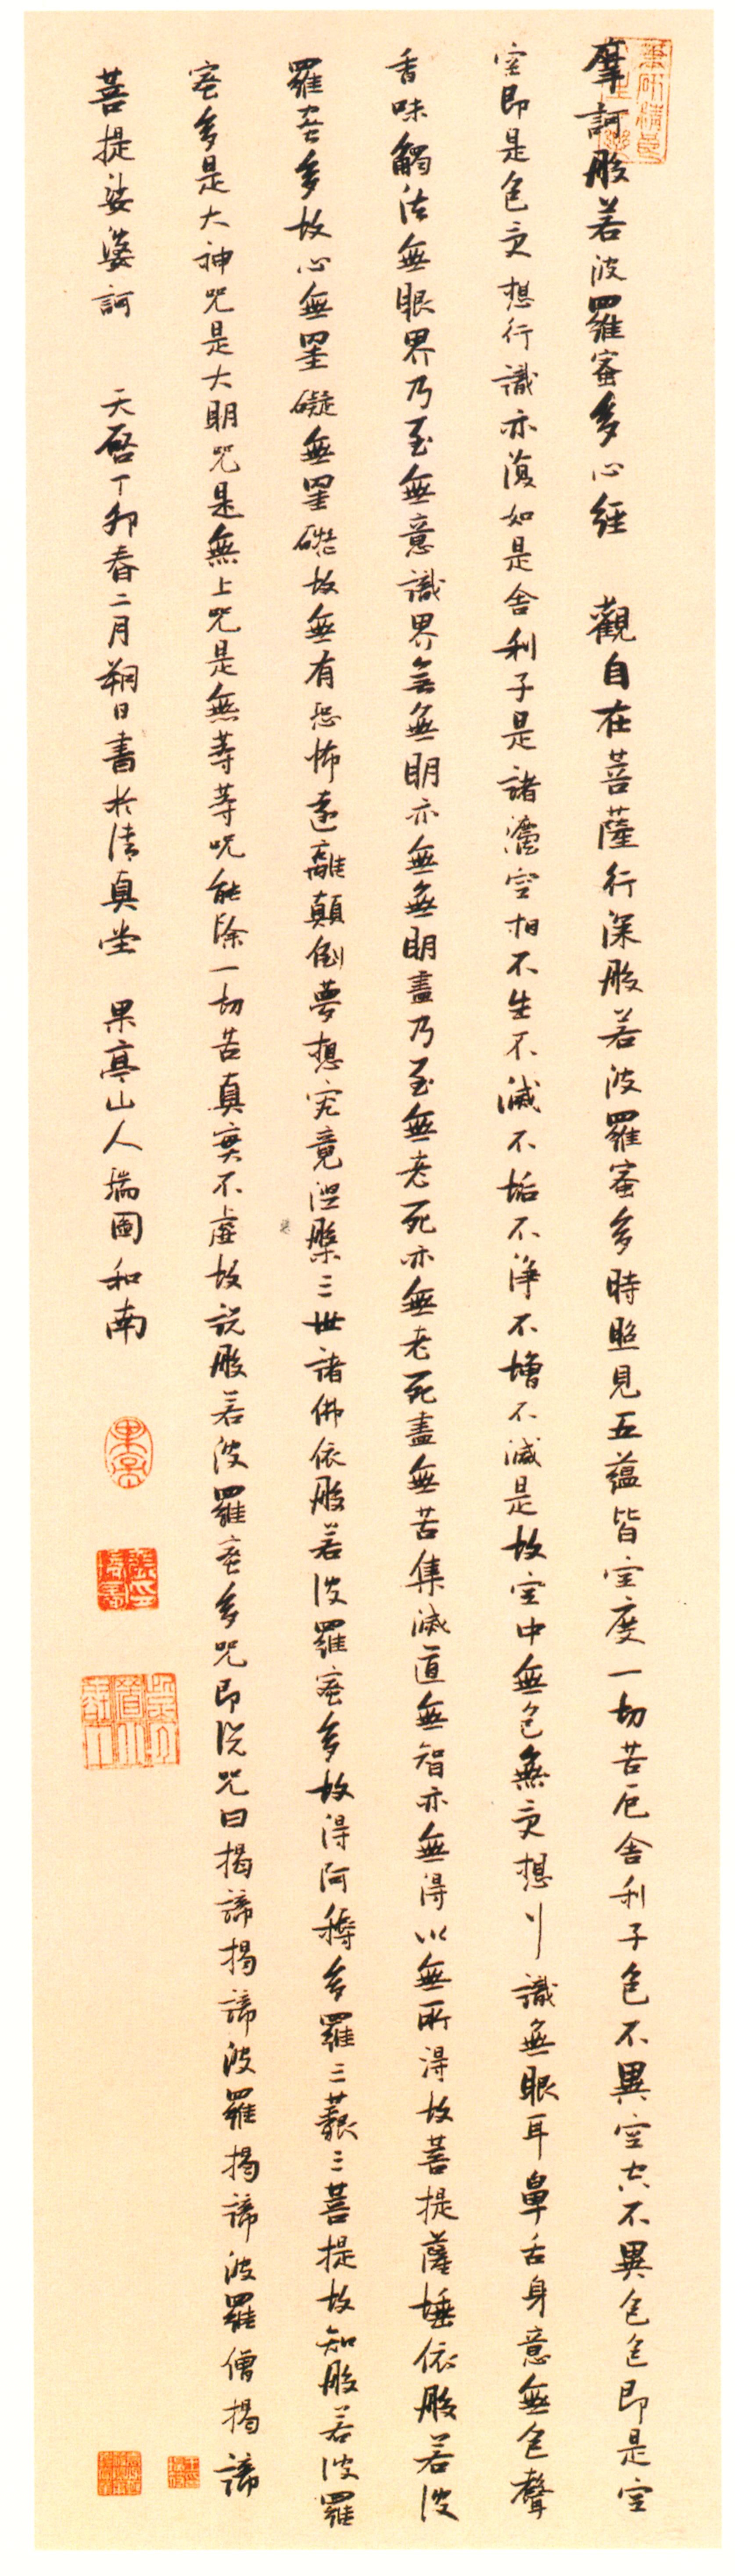 摩訶般若波羅蜜多心經 觀自在菩薩行深般若波羅蜜多時照見五蘊皆空度一切苦厄舍利子色不異空空不異色色即是空
空即是色受想行識亦復如是舍利子是諸灋空相不生不滅不垢不淨不增不減是故空中無色無受想行識無眼耳鼻舌身意無色聲
香味觸法無眼界乃至無意識界無無明亦無無明盡乃至無老死亦無老死盡無苦集滅道無智亦無得以無所得故菩提薩埵依般若波
羅蜜多故心無罣礙無罣礙故無有恐怖遠離顛倒夢想究竟涅槃三世諸佛依般若波羅蜜多故得阿耨多羅三藐三菩提故知般若波羅
蜜多是大神咒是大明咒是無上咒是無等等咒能除一切苦真實不虛故說般若波羅蜜多咒即說咒曰揭諦揭諦波羅揭諦波羅僧揭諦
菩提娑婆訶 天啓丁卯春二月朔日書於清真堂 果亭山人瑞圖和南
果亭